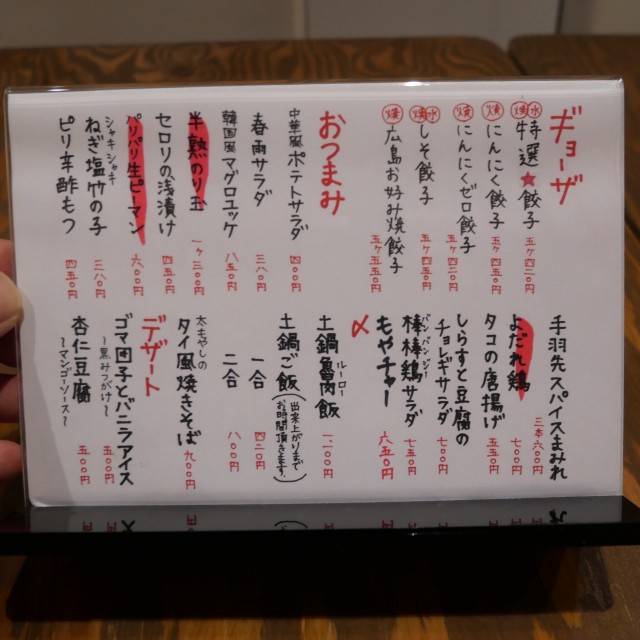 ギョーザ
焼 水
特選★餃子 五ヶ四二〇円
焼
にんにく餃子 五ヶ四五〇円
焼
にんにくゼロ餃子 五ヶ四二〇円
焼 水
しそ餃子 五ヶ四五〇円
焼
広島お好み焼餃子 五ヶ五五〇円
おつまみ
中華風ポテトサラダ 四〇〇円
春雨サラダ 三八〇円
韓国風マグロユッケ 八五〇円
半熟のり玉 一ヶ三〇〇円
セロリの浅漬け 四五〇円
パリパリ生ピーマン 六〇〇円
シャキシャキ
ねぎ塩竹の子 三八〇円
ピリ辛酢もつ 四五〇円
手羽先スパイスまみれ 三本六〇〇円
よだれ鶏 七〇〇円
タコの唐揚げ 五五〇円
しらすと豆腐の
チョレギサラダ 七〇〇円
バンバンジー
棒棒鶏サラダ 七五〇円
もやチャー 六五〇円
〆
ルーロー
土鍋魯肉飯 一二〇〇円
土鍋ご飯(出来上がりまでお時間頂きます)
一合 四二〇円
二合 八〇〇円
太もやしの
タイ風焼きそば 九〇〇円
デザート
ゴマ団子とバニラアイス
～黒みつがけ～ 五〇〇円
杏仁豆腐
～マンゴーソース～ 五〇〇円